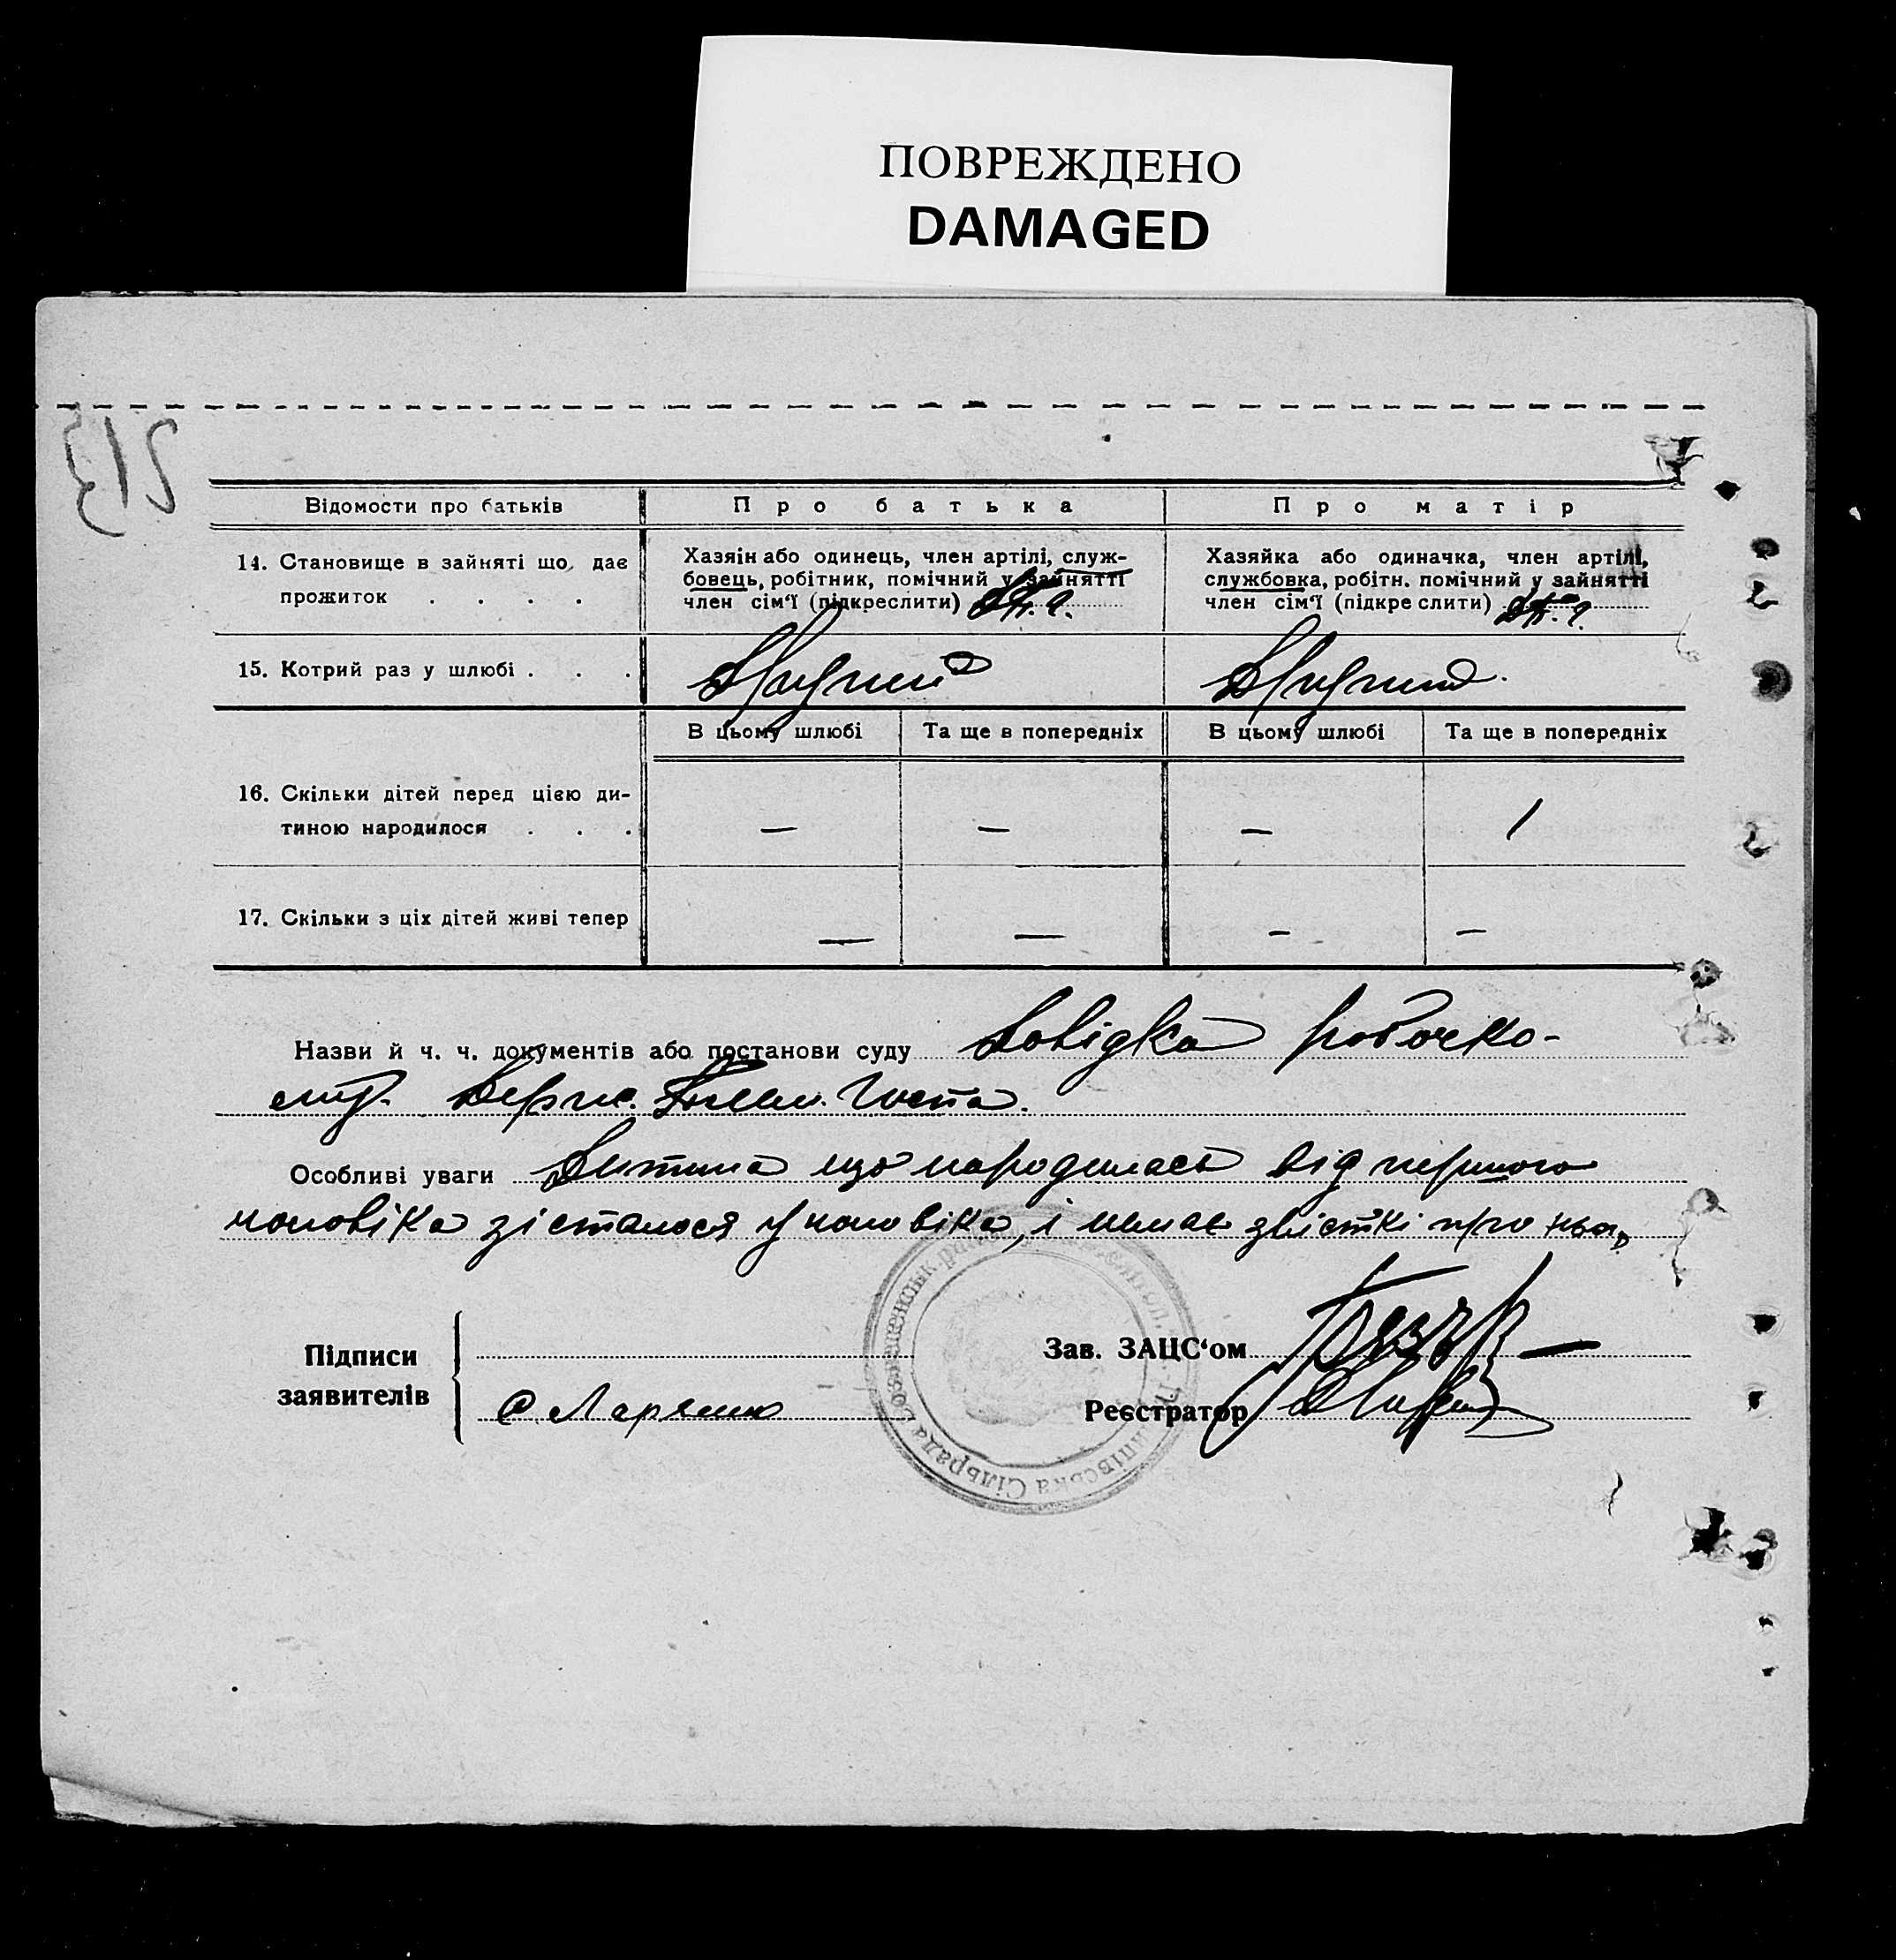 ПОВРЕЖДЕНО
DAMAGED
213
Відомости про батьків
Про батька
Про матір
14. Становище в зайняті що дає
прожиток . . . .
Хазяін або одинець, член артілі, служ-
бовець, робітник, помічний у зайнятті
член сім'ї (підкреслити)
Хазяйка або одиначка, член артілі,
службовка, робітн. помічний у зайнятті
член сім'ї (підкреслити)
15. Котрий раз у шлюбі . . .
Другий
Другий
В цьому шлюбі
Та ще в попередніх
В цьому шлюбі
Та ще в попередніх
16. Скільки дітей перед цією ди-
тиною народилося . . .
— — — 1
17. Скільки з ціх дітей живі тепер
— — — —
Назви й ч. ч. документів або постанови суду Довідка робочко-
Держ.
Особливі уваги Дитина що народилась від першого
чоловіка зісталося у чоловіка, і немає звісткі про нього
Підписи
заявителів
Зав. ЗАЦС'ом
Реєстратор
Сільрада